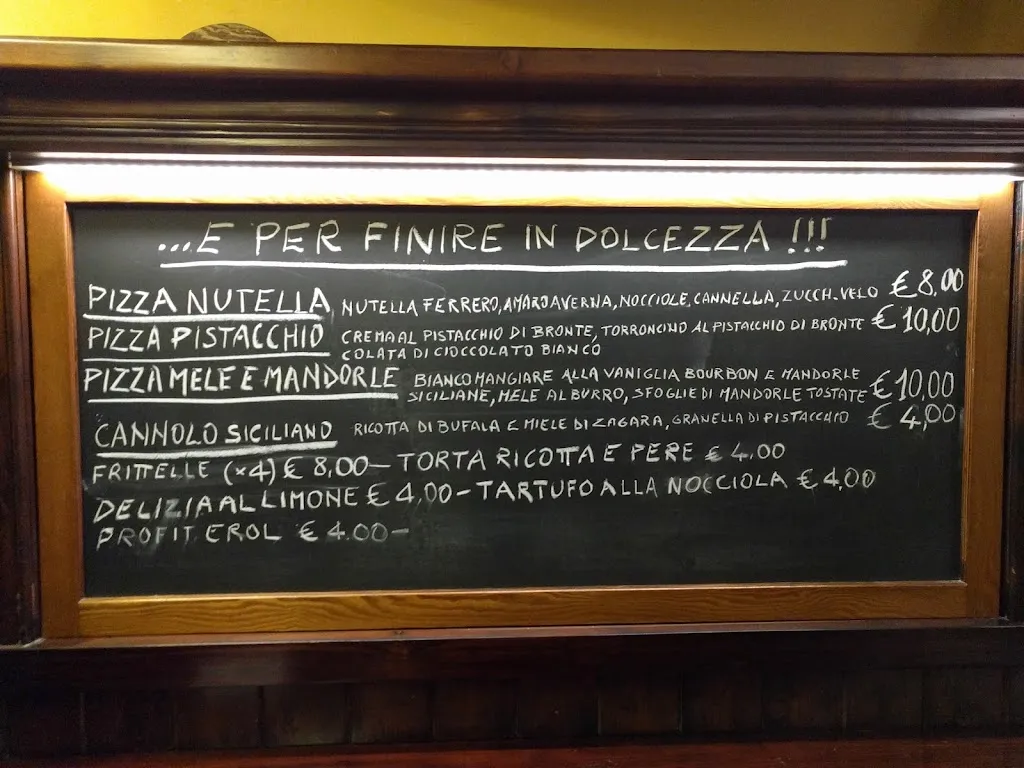 ...E PER FINIRE IN DOLCEZZA !!!
PIZZA NUTELLA NUTELLA FERRERO, AMARO AVERNA, NOCCIOLE, CANNELLA, ZUCCH. VELO €8,00
PIZZA PISTACCHIO CREMA AL PISTACCHIO DI BRONTE, TORRONCINO AL PISTACCHIO DI BRONTE € 10,00
COLATA DI CIOCCOLATO BIANCO
PIZZA MELE E MANDORLE BIANCO MANGIARE ALLA VANIGLIA BOURBON E MANDORLE
SICILIANE, MELE AL BURRO, SFOGLIE DI MANDORLE TOSTATE €10,00
CANNOLO SICILIANO RICOTTA DI BUFALA E MIELE DI ZAGARA, GRANELLA DI PISTACCHIO € 4,00
FRITTELLE (×4) € 8,00 - TORTA RICOTTA E PERE € 4.00
DELIZIA AL LIMONE € 4,00 - TARTUFO ALLA NOCCIOLA € 4,00
PROFIT EROL € 4.00 -